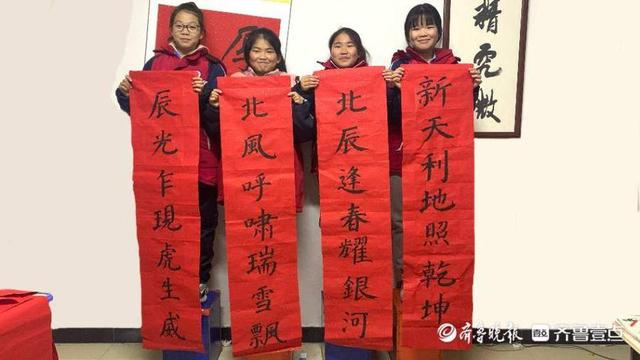 精
微
新天利地照乾坤
北辰逢春耀銀河
北風呼嘯瑞雪飄
辰光乍現虎生威
齐鲁晚报 齐鲁壹点